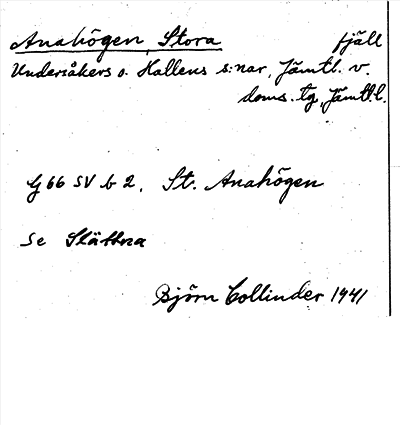 Anahögen, Stora fjäll
Undersåkers o. Hallens s:nar, Jämtl. v.
doms. tg, Jämtl. l.
G 66 SV b 2. St. Anahögen
Se Slättna
Björn Collinder 1941